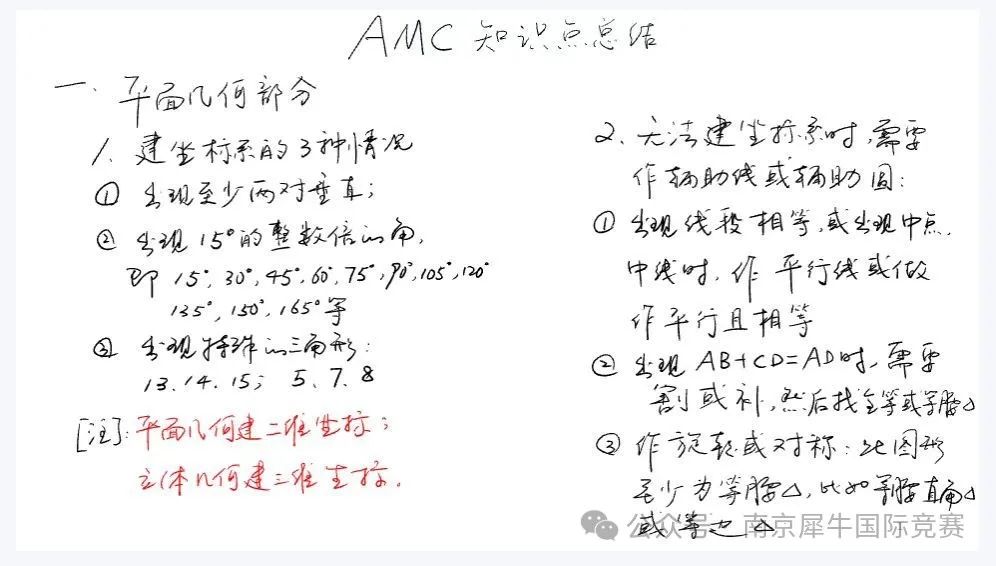 AMC 知识点总结
一. 平面几何部分
1. 建坐标系的3种情况
① 出现至少两对垂直;
② 出现15°的整数倍的角,
即 15°,30°,45°,60°,75°,90°,105°,120°
135°,150°,165°等
③ 出现特殊的三角形:
13.14.15; 5.7.8
[注]:平面几何建二维坐标;
立体几何建三维坐标.
2. 无法建坐标系时,需要
作辅助线或辅助圆:
① 出现线段相等,或出现中点.
中线时,作平行线或做
作平行且相等
② 出现AB+CD=AD时,需要
割或补,然后找全等或等腰△
③ 作旋转或对称:此图形
至少为等腰△,比如等腰直角△
或等边△
公众号 · 南京犀牛国际竞赛